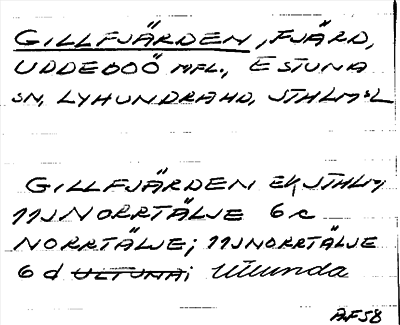 GILLFJÄRDEN, FJÄRD,
UDDEBOÖ MFL., ESTUNA
SN, LYHUNDRA HD, STHLMS L
GILLFJÄRDEN EK, STHLM
11J NORRTÄLJE 6 c
NORRTÄLJE; 11J NORRTÄLJE
6 d ULTUNA; Utlunda
AF58